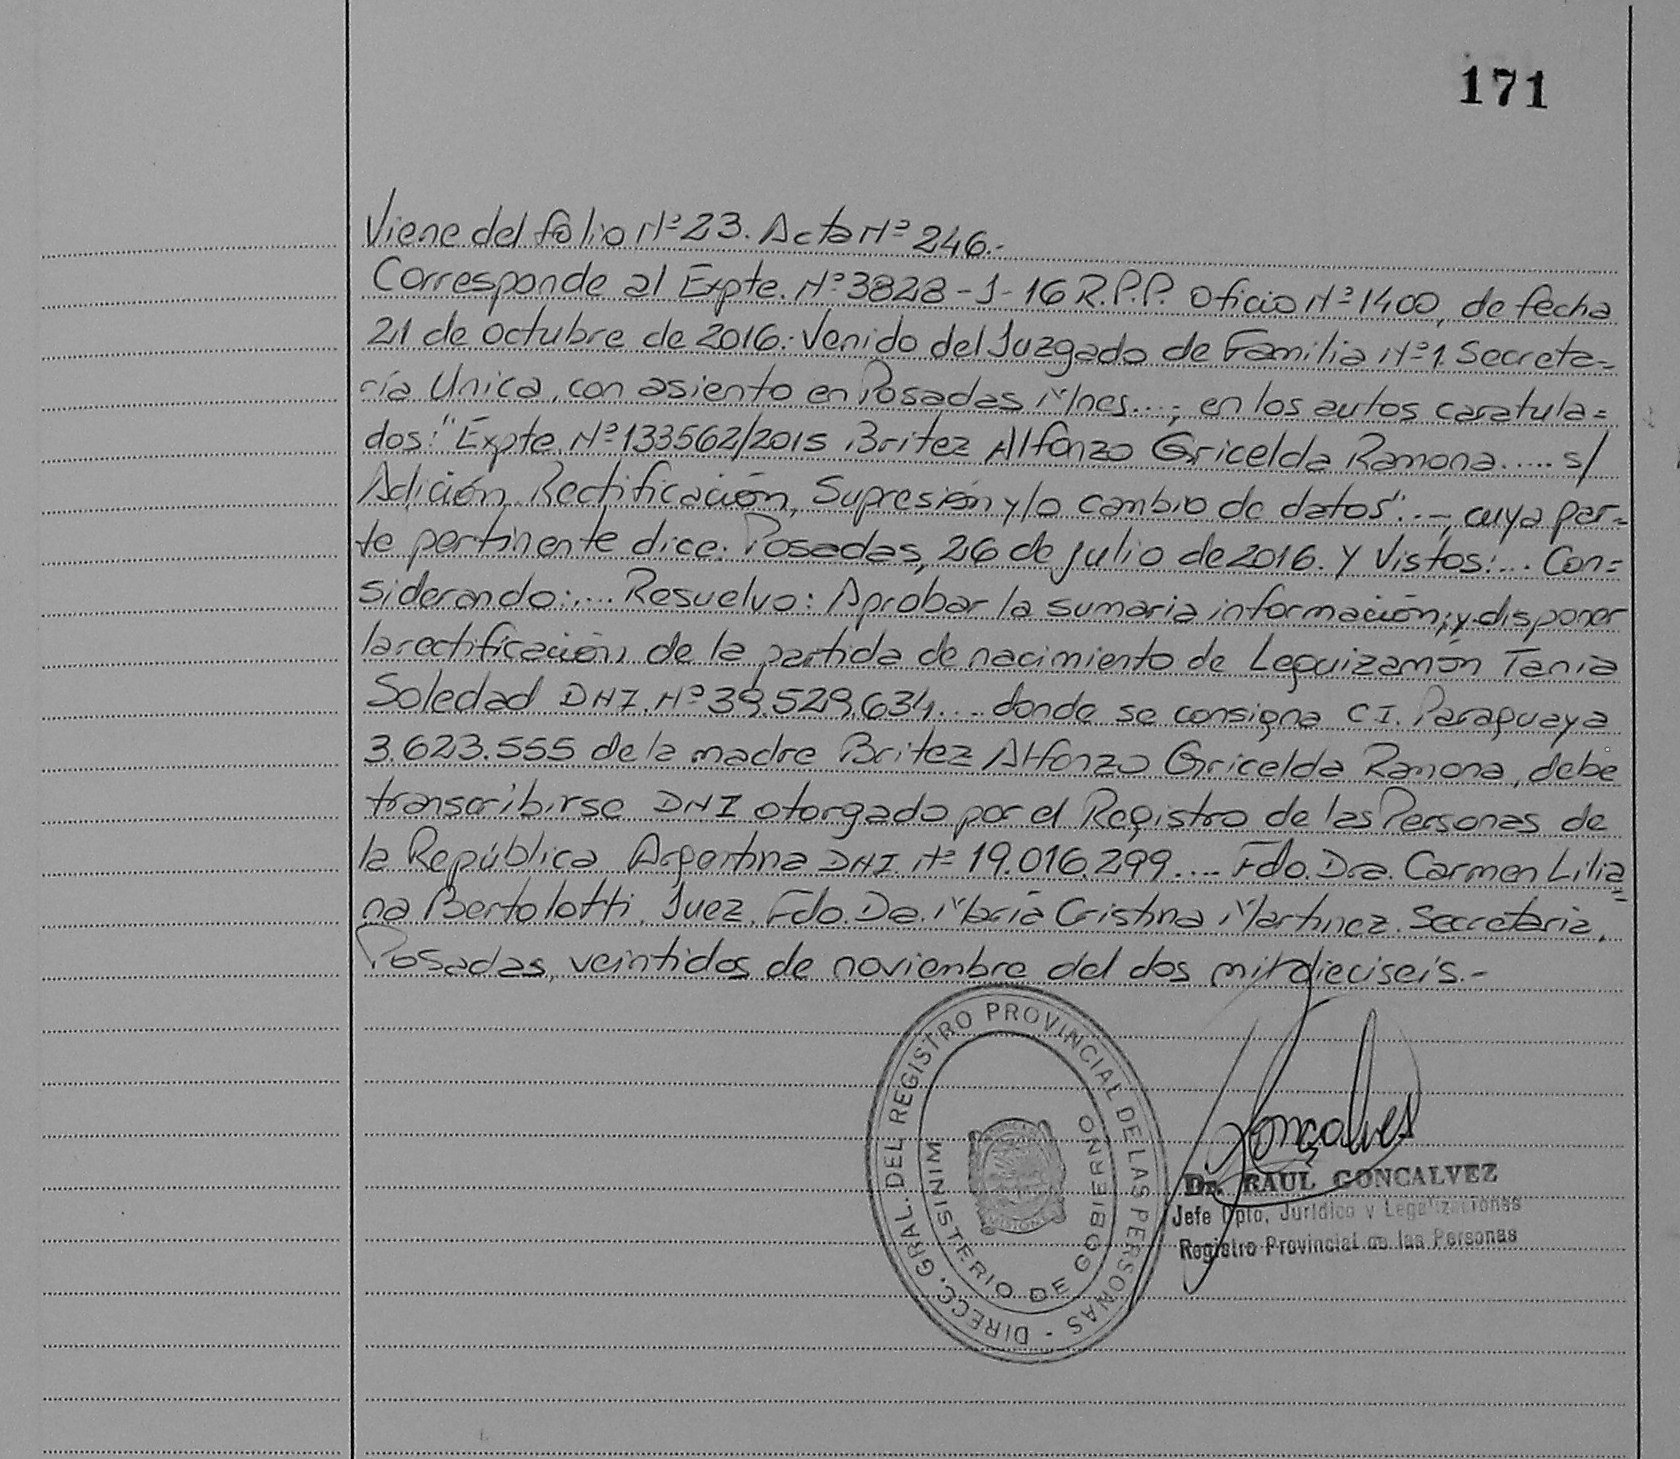 171
Viene del folio Nº 23. Acta Nº 246.-
Corresponde al Expte. Nº 3828-J-16 R.P.P. Oficio Nº 1400, de fecha
21 de octubre de 2016.- Venido del Juzgado de Familia Nº 1. Secreta=
ría Unica, con asiento en Posadas Mnes...; en los autos caratula=
dos: "Expte. Nº 133562/2015 Britez Alfonzo Gricelda Ramona..... s/
Adición, Rectificación, Supresión y/o cambio de datos"...-, cuya par=
te pertinente dice: Posadas, 26 de julio de 2016. Y Vistos:... Con=
siderando:.... Resuelvo: Aprobar la sumaria información; y disponer
la rectificación de la partida de nacimiento de Leguizamón Tania
Soledad DNI. Nº 39.529.634.... donde se consigna C.I. Paraguaya
3.623.555 de la madre Britez Alfonzo Gricelda Ramona, debe
transcribirse DNI otorgado por el Registro de las Personas de
la República Argentina DNI Nº 19.016.299.... Fdo. Dra. Carmen Lilia=
na Bertolotti. Juez. Fdo. Da. María Cristina Martinez. Secretaria.
Posadas, veintidos de noviembre del dos mil dieciseis.-
DIRECC. GRAL. DEL REGISTRO PROVINCIAL DE LAS PERSONAS -
MINISTERIO DE GOBIERNO
MISIONES
Gonçalves
Dr. RAUL GONCALVEZ
Jefe Dpto. Jurídico y Legalizaciones
Registro Provincial de las Personas